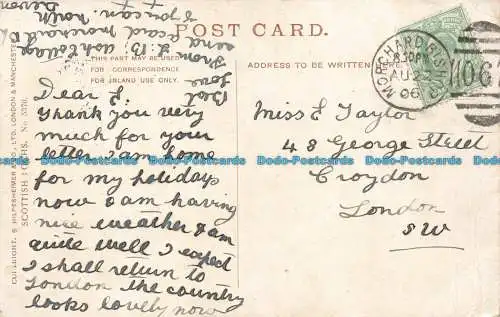 POST CARD.
THIS SPACE MAY BE USED
FOR CORRESPONDENCE
FOR INLAND USE ONLY.
ADDRESS TO BE WRITTEN
Dear E.
Thank you very
much for your
letter I am home
for my holidays
now & am having
nice weather & am
quite well I expect
I shall return to
London the country
looks lovely now
Best
love
from
L.B.
send
a card
if you can
North
Devon
Miss E Taylor
48 George Street
Croydon
London
SW
MORCHARD BISHOP
AU 22
06
LTD, LONDON & MANCHESTER
SCOTTISH
Dodo-Postcards Dodo-Postcards Dodo-Postcards Dodo-Postcards Dodo-Postcards